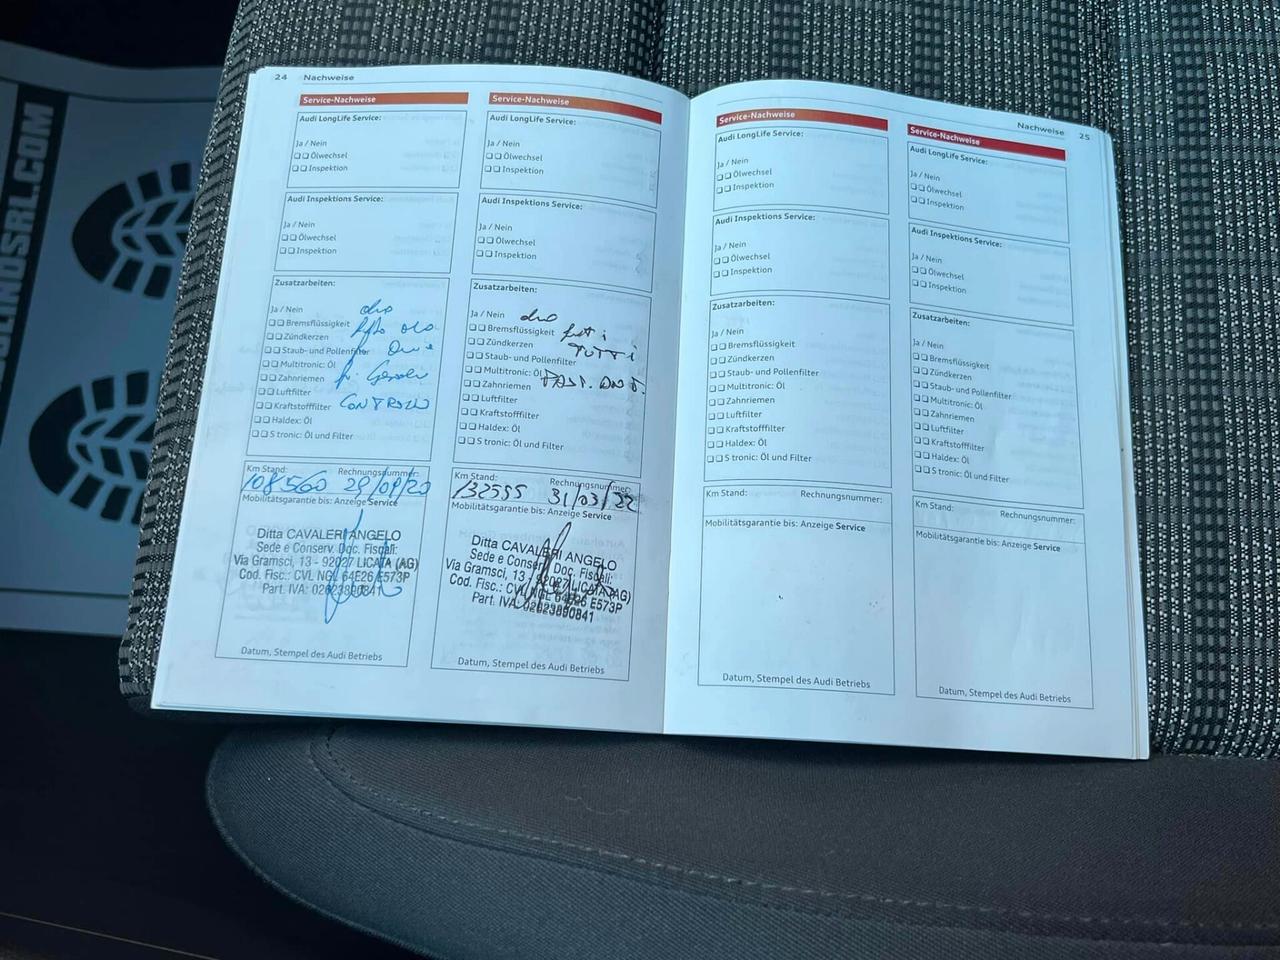 24 Nachweise
Service-Nachweise
Audi LongLife Service:
Ja / Nein
Ölwechsel
Inspektion
Audi Inspektions Service:
Ja / Nein
Ölwechsel
Inspektion
Zusatzarbeiten:
Ja / Nein
Bremsflüssigkeit
Zündkerzen
Staub- und Pollenfilter
Multitronic: Öl
Zahnriemen
Luftfilter
Kraftstofffilter CONTROLLO
Haldex: Öl
S tronic: Öl und Filter
Km Stand: Rechnungsnummer:
108560
Mobilitätsgarantie bis: Anzeige Service
Ditta CAVALERI ANGELO
Sede e Conserv. Doc. Fiscali:
Via Gramsci, 13 - 92027 LICATA (AG)
Cod. Fisc.: CVL NGL 64E26 E573P
Part. IVA: 02623890841
Datum, Stempel des Audi Betriebs
Service-Nachweise
Audi LongLife Service:
Ja / Nein
Ölwechsel
Inspektion
Audi Inspektions Service:
Ja / Nein
Ölwechsel
Inspektion
Zusatzarbeiten:
Ja / Nein
Bremsflüssigkeit
Zündkerzen TUTTI
Staub- und Pollenfilter
Multitronic: Öl
Zahnriemen
Luftfilter
Kraftstofffilter
Haldex: Öl
S tronic: Öl und Filter
Km Stand: Rechnungsnummer:
132595 31/03/22
Mobilitätsgarantie bis: Anzeige Service
Ditta CAVALERI ANGELO
Sede e Conserv. Doc. Fiscali:
Via Gramsci, 13 - 92027 LICATA (AG)
Cod. Fisc.: CVL NGL 64E26 E573P
Part. IVA: 02623890841
Datum, Stempel des Audi Betriebs
Nachweise 25
Service-Nachweise
Audi LongLife Service:
Ja / Nein
Ölwechsel
Inspektion
Audi Inspektions Service:
Ja / Nein
Ölwechsel
Inspektion
Zusatzarbeiten:
Ja / Nein
Bremsflüssigkeit
Zündkerzen
Staub- und Pollenfilter
Multitronic: Öl
Zahnriemen
Luftfilter
Kraftstofffilter
Haldex: Öl
S tronic: Öl und Filter
Km Stand: Rechnungsnummer:
Mobilitätsgarantie bis: Anzeige Service
Datum, Stempel des Audi Betriebs
Service-Nachweise
Audi LongLife Service:
Ja / Nein
Ölwechsel
Inspektion
Audi Inspektions Service:
Ja / Nein
Ölwechsel
Inspektion
Zusatzarbeiten:
Ja / Nein
Bremsflüssigkeit
Zündkerzen
Staub- und Pollenfilter
Multitronic: Öl
Zahnriemen
Luftfilter
Kraftstofffilter
Haldex: Öl
S tronic: Öl und Filter
Km Stand: Rechnungsnummer:
Mobilitätsgarantie bis: Anzeige Service
Datum, Stempel des Audi Betriebs